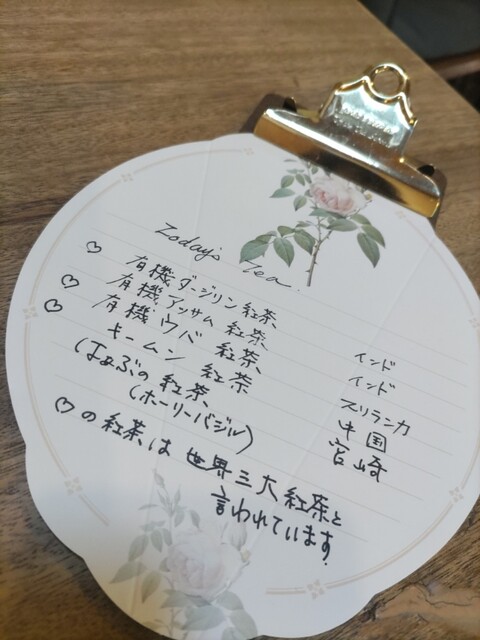 Today's Tea.
♡ 有機ダージリン紅茶 インド
有機アッサム紅茶 インド
♡ 有機ウバ 紅茶 スリランカ
♡ キームン 紅茶 中国
はぁぶの紅茶 宮崎
(ホーリーバジル)
♡の紅茶は世界三大紅茶と
言われています.